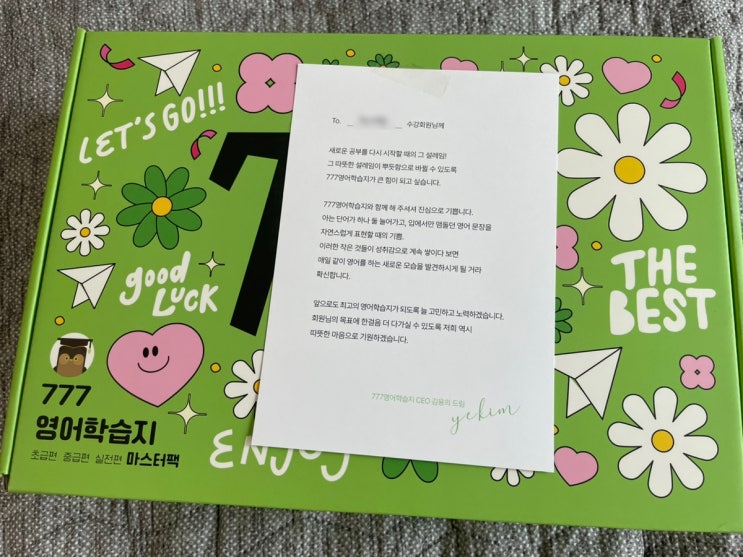 LET'S GO!!!
7
good
LUCK
THE
BEST
777
영어학습지
초급편 중급편 실전편 마스터팩
ENJOY
To. 수강회원님께
새로운 공부를 다시 시작할 때의 그 설레임!
그 따뜻한 설레임이 뿌듯함으로 바뀔 수 있도록
777영어학습지가 큰 힘이 되고 싶습니다.
777영어학습지와 함께 해 주셔서 진심으로 기쁩니다.
아는 단어가 하나 둘 늘어가고, 입에서만 맴돌던 영어 문장을
자연스럽게 표현할 때의 기쁨.
이러한 작은 것들이 성취감으로 계속 쌓이다 보면
매일 같이 영어를 하는 새로운 모습을 발견하시게 될 거라
확신합니다.
앞으로도 최고의 영어학습지가 되도록 늘 고민하고 노력하겠습니다.
회원님의 목표에 한걸음 더 다가실 수 있도록 저희 역시
따뜻한 마음으로 기원하겠습니다.
777영어학습지 CEO 김용의 드림
yekim